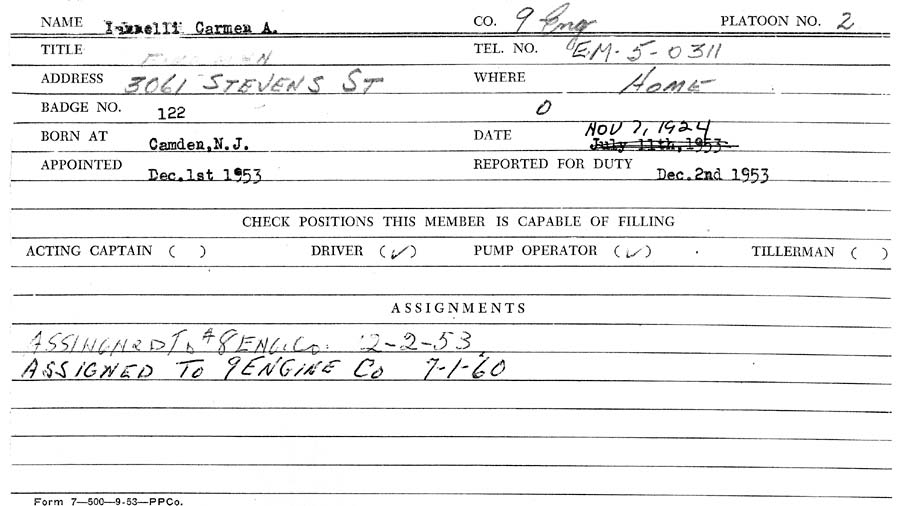 NAME Iannelli Carmen A. CO. 9 Eng PLATOON NO. 2
TITLE FIREMAN TEL. NO. EM-5-0311
ADDRESS 3061 STEVENS ST WHERE HOME
BADGE NO. 122 0
BORN AT Camden,N.J. DATE NOV 7, 1924 July 11th,1953
APPOINTED Dec.1st 1953 REPORTED FOR DUTY Dec.2nd 1953
CHECK POSITIONS THIS MEMBER IS CAPABLE OF FILLING
ACTING CAPTAIN ( ) DRIVER (✓) PUMP OPERATOR (✓) TILLERMAN ( )
ASSIGNMENTS
ASSINGNED To #8 ENG. Co. 12-2-53
ASSIGNED To 9 ENGINE Co 7-1-60
Form 7—500—9-53—PPCo.